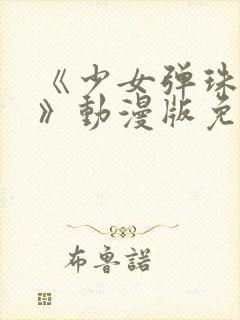 《少女弹珠
》動漫版免
布魯諾